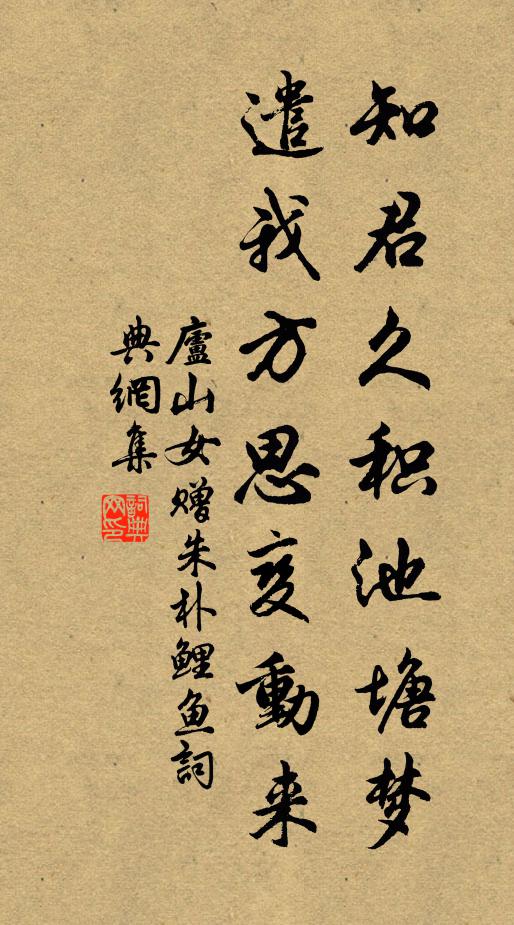 知君久积池塘梦
遣我方思变動来
廬山女赠朱朴鲤鱼詞
典網集
詞典网印